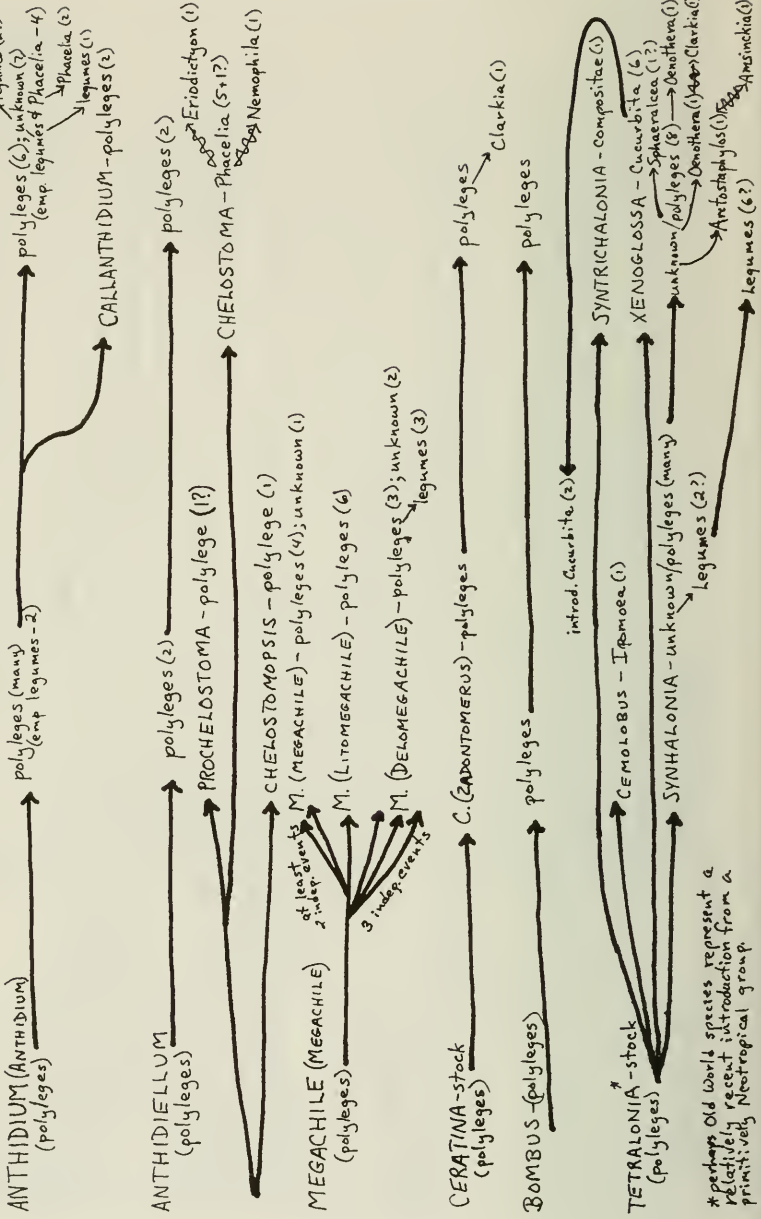 ANTHIDIUM (ANTHIDIUM)
(polyleges)
polyleges (many)
(emp legumes-2)
polyleges (6); unknown (?)
(emp. legumes & Phacelia-4)
Phacelia (2)
legumes (1)
CALLANTHIDIUM-polyleges (2)
ANTHIDIELLUM
(polyleges)
polyleges (2)
polyleges (2)
PROCHELOSTOMA-polylege (1?)
Eriodictyon (1)
CHELOSTOMA-Phacelia (5+1?)
Nemophila (1)
CHELOSTOMOPSIS-polylege (1)
MEGACHILE (MEGACHILE)
(polyleges)
at least
2 indep. events
3 indep. events
M. (MEGACHILE)-polyleges (4); unknown (1)
M. (LITOMEGACHILE)-polyleges (6)
M. (DELOMEGACHILE)-polyleges (3); unknown (2)
legumes (3)
CERATINA-stock
(polyleges)
C. (ZADONTOMERUS)-polyleges
polyleges
Clarkia (1)
BOMBUS-(polyleges)
polyleges
polyleges
introd. Cucurbita (2)
TETRALONIA*-stock
(polyleges)
SYNTRICHALONIA-compositae (1)
CEMOLOBUS-Ipomoea (1)
XENOGLOSSA-Cucurbita (6)
Sphaeralcea (1?)
SYNHALONIA-unknown/polyleges (many)
unknown/polyleges (8)
Oenothera (1)
Oenothera (1)
Clarkia (
Arctostaphylos (1)
Amsinckia (1)
Legumes (2?)
Legumes (6?)
*perhaps Old World species represent a
relatively recent introduction from a
primitively Neotropical group.